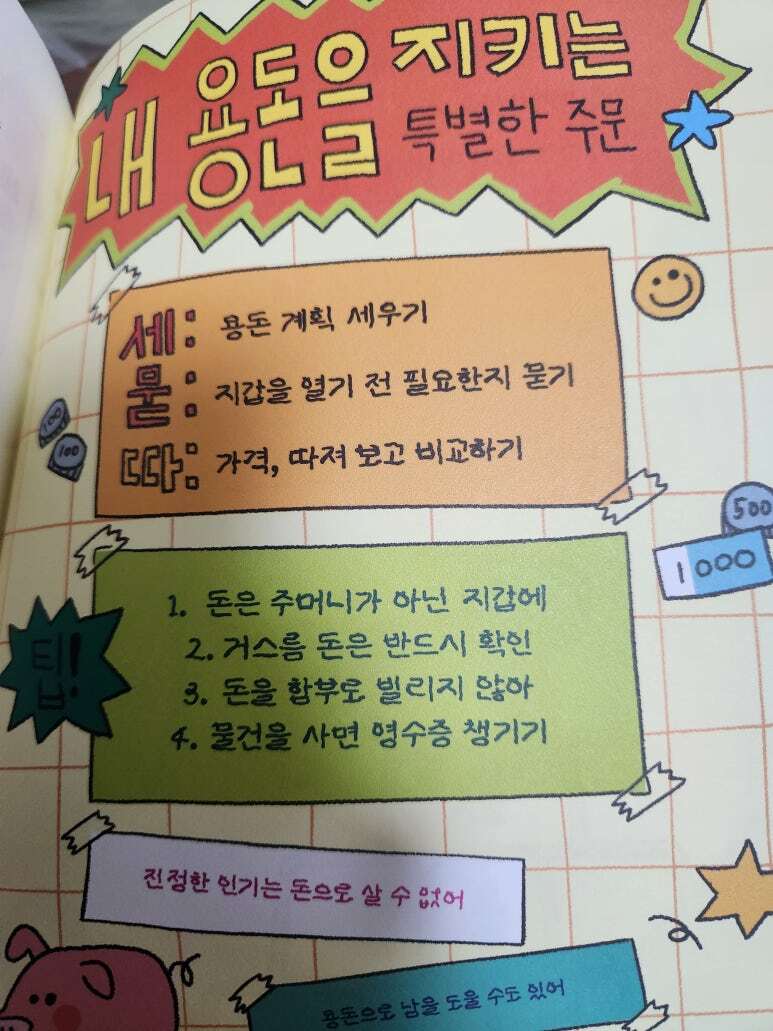 내 용돈을 지키는
특별한 주문
세: 용돈 계획 세우기
묻: 지갑을 열기 전 필요한지 묻기
따: 가격, 따져 보고 비교하기
100
100
500
1000
팁!
1. 돈은 주머니가 아닌 지갑에
2. 거스름 돈은 반드시 확인
3. 돈을 함부로 빌리지 않아
4. 물건을 사면 영수증 챙기기
진정한 인기는 돈으로 살 수 없어
용돈으로 남을 도울 수도 있어